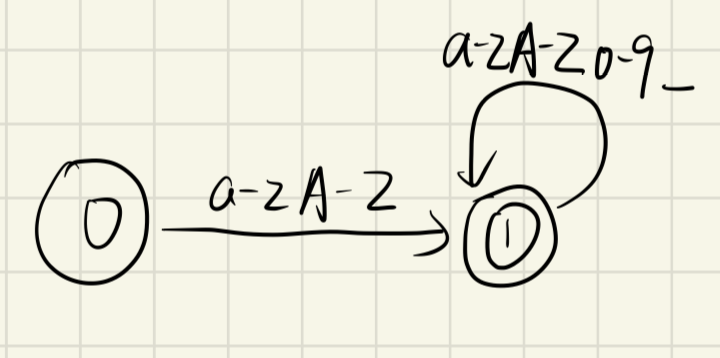 a-zA-Z0-9_
a-zA-Z
0
1